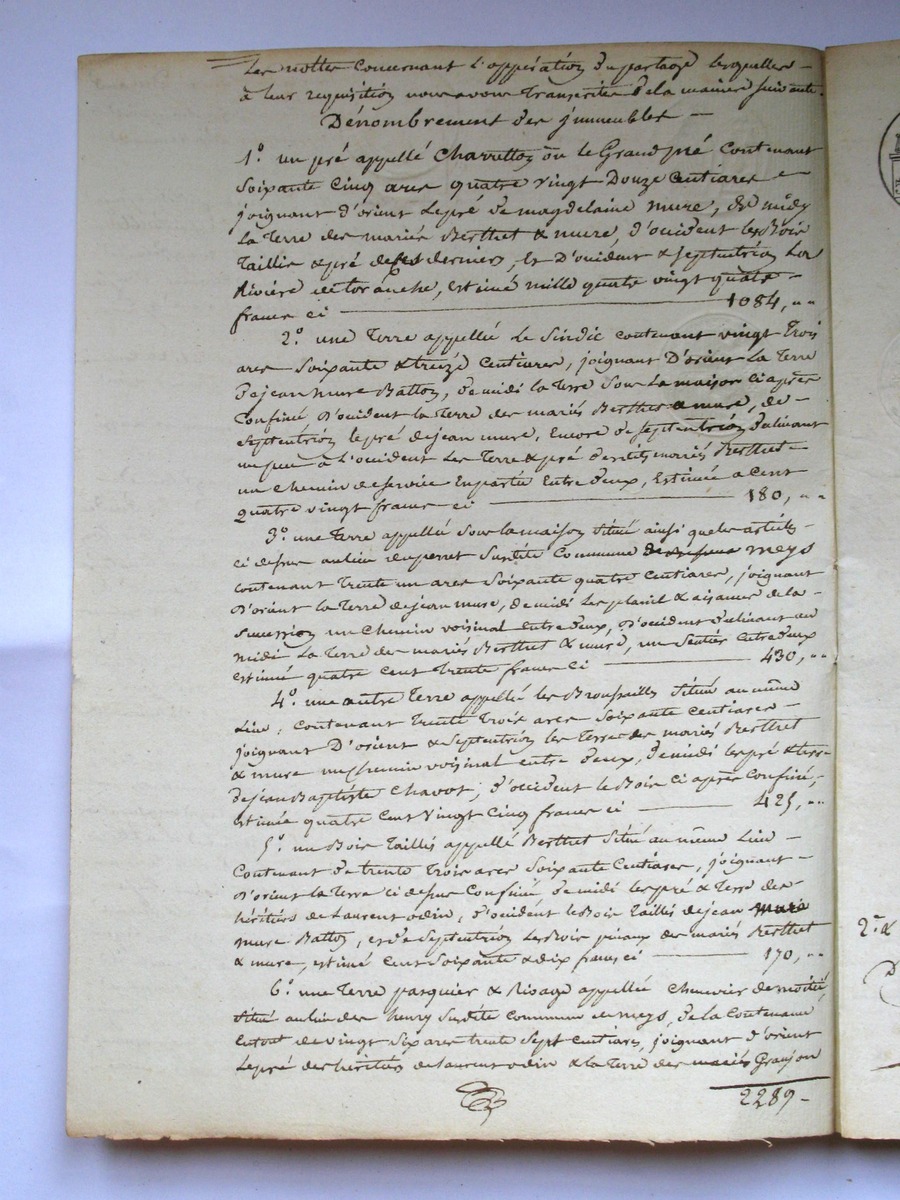 Les nottes concernant l'oppération du partage lesquelles
a leur requisition nous avons transcrites de la maniere suivante.
Dénombrement des jmmeubles —
1.° un pré appellé Charretton ou le Grand pré contenant
soixante cinq ares quatre vingt Douze centiares
joignant d'orient le pré de magdelaine mure, de midy
la terre des mariés Berthet & mure, d'occident les Bois
taillis & pré de ses derniers, et D'occident & septentrion la
Rivière de toranche, estimé mille quatre vingt quatre
francs ci — 1084, ""
2.° une terre appellée Le Sindic contenant vingt trois
ares soixante & treize centiares, joignant D'orient la terre
de jean mure Batton, de midi la terre sous la maison ci après
confiné D'occident la terre des mariés Berthet & mure, de
septentrion le pré de jean mure, encore de septentrion déclinant
un peu à l'occident les terre & pré desdits mariés Berthet
un chemin de service en partie entre deux, Estimée a cent
quatre vingt francs ci — 180, ""
3.° une terre appellée sous la maison située ainsi que les articles
ci dessus au lieu de perret susdite Commune meys
contenant trente un ares soixante quatre centiares, joignant
D'orient la terre de jean mure, de midi les plani & aisances de la
succession un chemin voisinal entre deux, D'occident déclinant au
midi la terre des mariés Berthet & mure, un sentier entre deux
estimée quatre cent trente francs ci — 430, ""
4.° une autre terre appellée les Broussailles située au même
Lieu, contenant trente trois ares soixante centiares
joignant D'orient & septentrion les terres des mariés Berthet
& mure un chemin voisinal entre deux, de midi les pré & terre
de jean Baptiste Chavot, d'occident le Bois ci après confiné,
estimée quatre cent vingt cinq francs ci — 425, ""
5.° un Bois taillis appellé Berthet situé au même Lieu
contenant de trente trois ares soixante centiares, joignant
D'orient la terre ci dessus confiné de midi les pré & terre des
héritiers de Laurent odin, d'occident le Bois taillis de jean mure
mure Batton, et de septentrion les Bois pinaux des mariés Berthet
& mure, estimé cent soixante & dix francs ci — 170, ""
6.° une terre pasquier & Rivage appellée Chenevier de moitié
située au lieu des henry susdite commune de meys, de la contenance
en tout de vingt six ares trente sept centiares, joignant d'orient
le pré des héritiers de Laurent odin & la terre des mariés Granjon
2289 —
2.e &